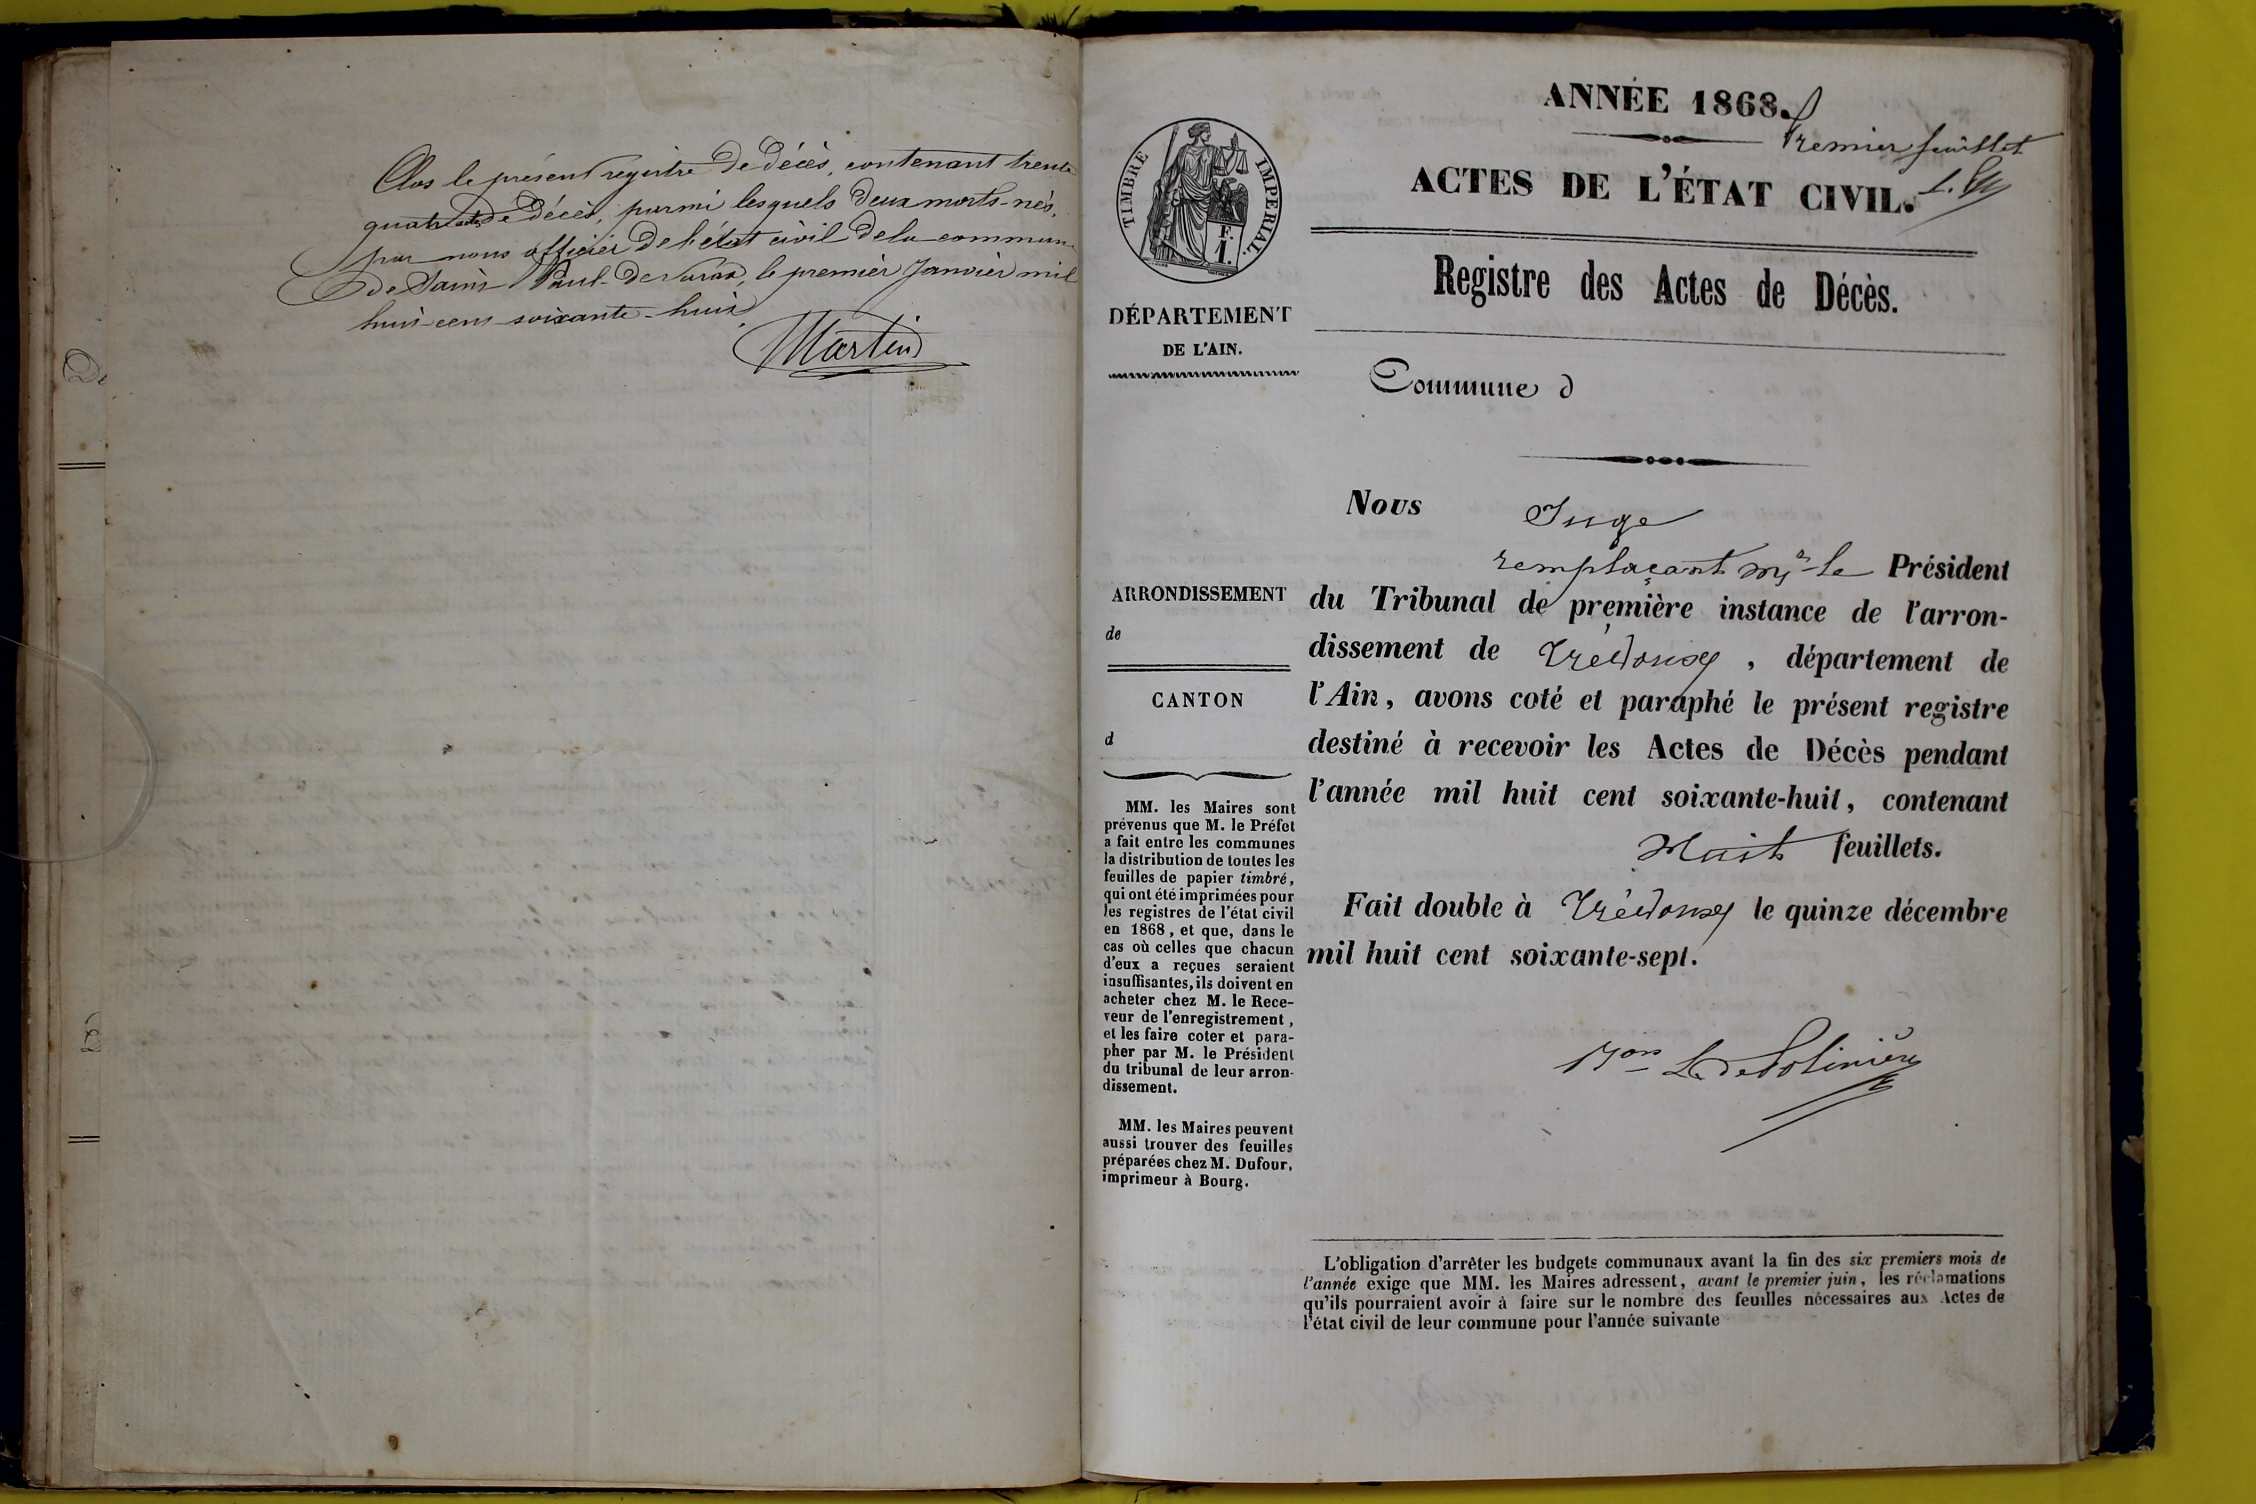 Clos le présent registre de décès, contenant trente
quatre actes de décès, parmi lesquels deux morts-nés,
par nous officier de l'état civil de la commune
de Saint Paul-de-Varax, le premier Janvier mil
huit-cent-soixante-huit
Martin
ANNÉE 1868.
Premier feuillet
ACTES DE L'ÉTAT CIVIL.
Registre des Actes de Décès.
TIMBRE IMPERIAL
DÉPARTEMENT
DE L'AIN.
Commune d
Nous Juge
remplaçant Mr le Président
du Tribunal de première instance de l'arron-
dissement de Trévoux, département de
l'Ain, avons coté et paraphé le présent registre
destiné à recevoir les Actes de Décès pendant
l'année mil huit cent soixante-huit, contenant
Huit feuillets.
Fait double à Trévoux le quinze décembre
mil huit cent soixante-sept.
ARRONDISSEMENT
de
CANTON
d
MM. les Maires sont
prévenus que M. le Préfet
a fait entre les communes
la distribution de toutes les
feuilles de papier timbré,
qui ont été imprimées pour
les registres de l'état civil
en 1868, et que, dans le
cas où celles que chacun
d'eux a reçues seraient
insuffisantes, ils doivent en
acheter chez M. le Rece-
veur de l'enregistrement,
et les faire coter et para-
pher par M. le Président
du tribunal de leur arron-
dissement.
MM. les Maires peuvent
aussi trouver des feuilles
préparées chez M. Dufour,
imprimeur à Bourg.
L'obligation d'arrêter les budgets communaux avant la fin des six premiers mois de
l'année exige que MM. les Maires adressent, avant le premier juin, les réclamations
qu'ils pourraient avoir à faire sur le nombre des feuilles nécessaires aux Actes de
l'état civil de leur commune pour l'année suivante